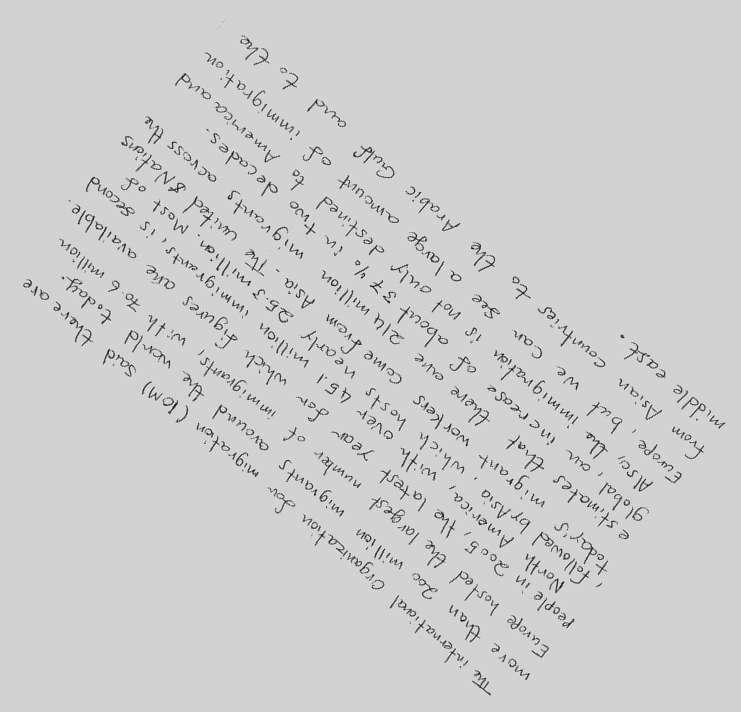 The international Organization for migration (IOM) said there are
more than 200 million migrants around the world today.
Europe hosted the largest number of immigrants, with 70.6 million
people in 2005, the latest year for which figures are available.
North America, with over 45.1 million immigrants, is second
, followed by Asia, which hosts nearly 25.3 million. Most of
today's migrant workers come from Asia. The united &Nations
estimates that there are 214 million migrants across the
global, an increase of about 37% in two decades.
Also, the immigration is not only destined to America and
Europe, but we can see a large amount of immigration
from Asian countries to the Arabic Gulf and to the
middle east.